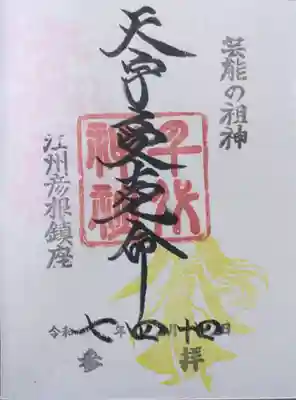 芸能の祖神
天宇受売命
千代
神社
江州彦根鎮座
令和七年四月十四日
参拝